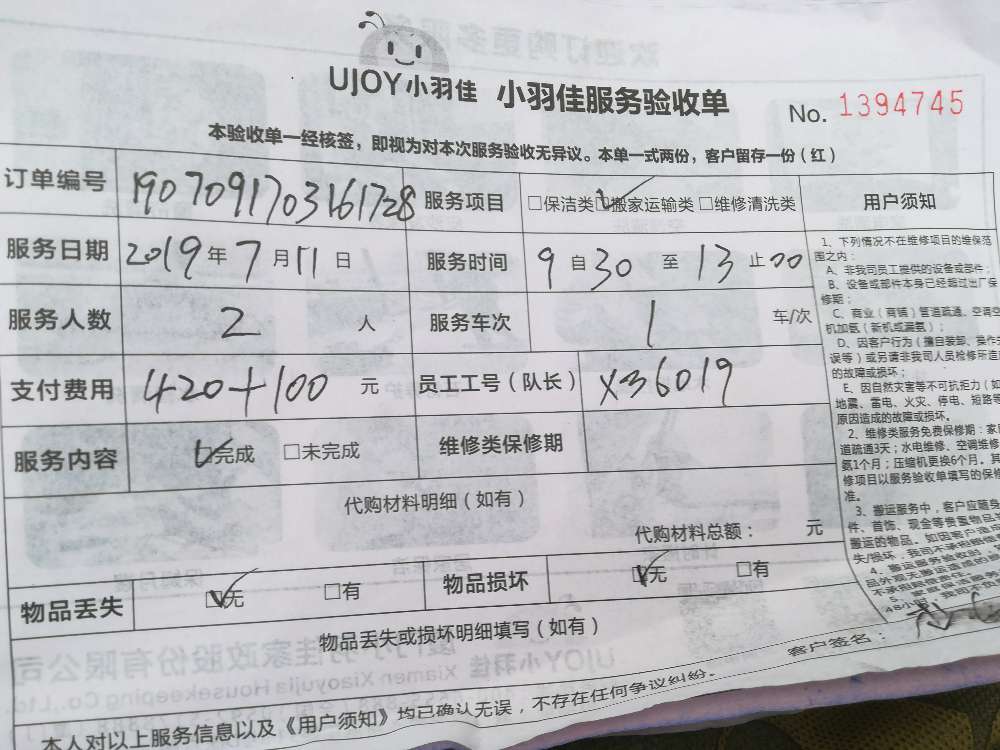 UJOY小羽佳 小羽佳服务验收单 No. 1394745
本验收单一经核签，即视为对本次服务验收无异议。本单一式两份，客户留存一份（红）
订单编号 1907091703161728 服务项目 □保洁类 ☑搬家运输类 □维修清洗类
服务日期 2019年7月11日 服务时间 9自30至13止00
服务人数 2人 服务车次 1车/次
支付费用 420+100元 员工工号（队长） X36019
服务内容 ☑完成 □未完成 维修类保修期
代购材料明细（如有）
代购材料总额： 元
物品丢失 ☑无 □有 物品损坏 ☑无 □有
物品丢失或损坏明细填写（如有）
本人对以上服务信息以及《用户须知》均已确认无误，不存在任何争议纠纷。 客户签名：
用户须知
1、下列情况不在维修项目的维保范
围之内：
A、非我司员工提供的设备或部件；
B、设备或部件本身已经超过出厂保
修期；
C、商业（商铺）管道疏通、空调空
机加氨（新机或漏氨）；
D、因客户行为（擅自装卸、操作失
误等）或另请非我司人员检修所造
的故障或损坏；
E、因自然灾害等不可抗拒力（如
地震、雷电、火灾、停电、短路等
原因造成的故障或损坏。
2、维修类服务免费保修期：家
道疏通3天；水电维修、空调维修
氨1个月；压缩机更换6个月。其
修项目以服务验收单填写的保修
准。
3、搬运服务中，客户应随身
件、首饰、现金等贵重物品
搬运的物品。如因客户
失/损坏，我司不承担
4、搬运服务验收时